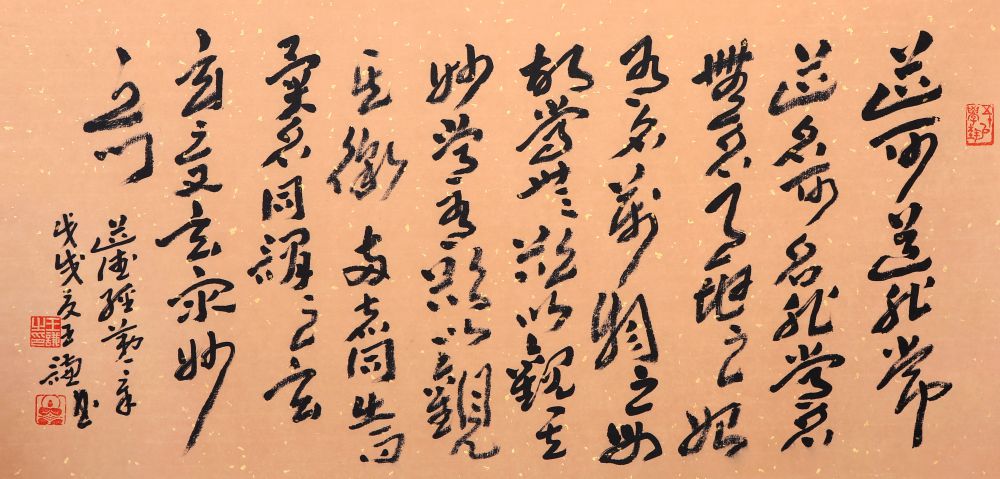 道可道非常
道名可名非常名
無名天地之始
有名萬物之母
故常無欲以觀其
妙常有欲以觀
其徼兩者同出而
異名同謂之玄
玄之又玄眾妙
之門
道德經第一章
戊戌夏王謙書
王謙之印